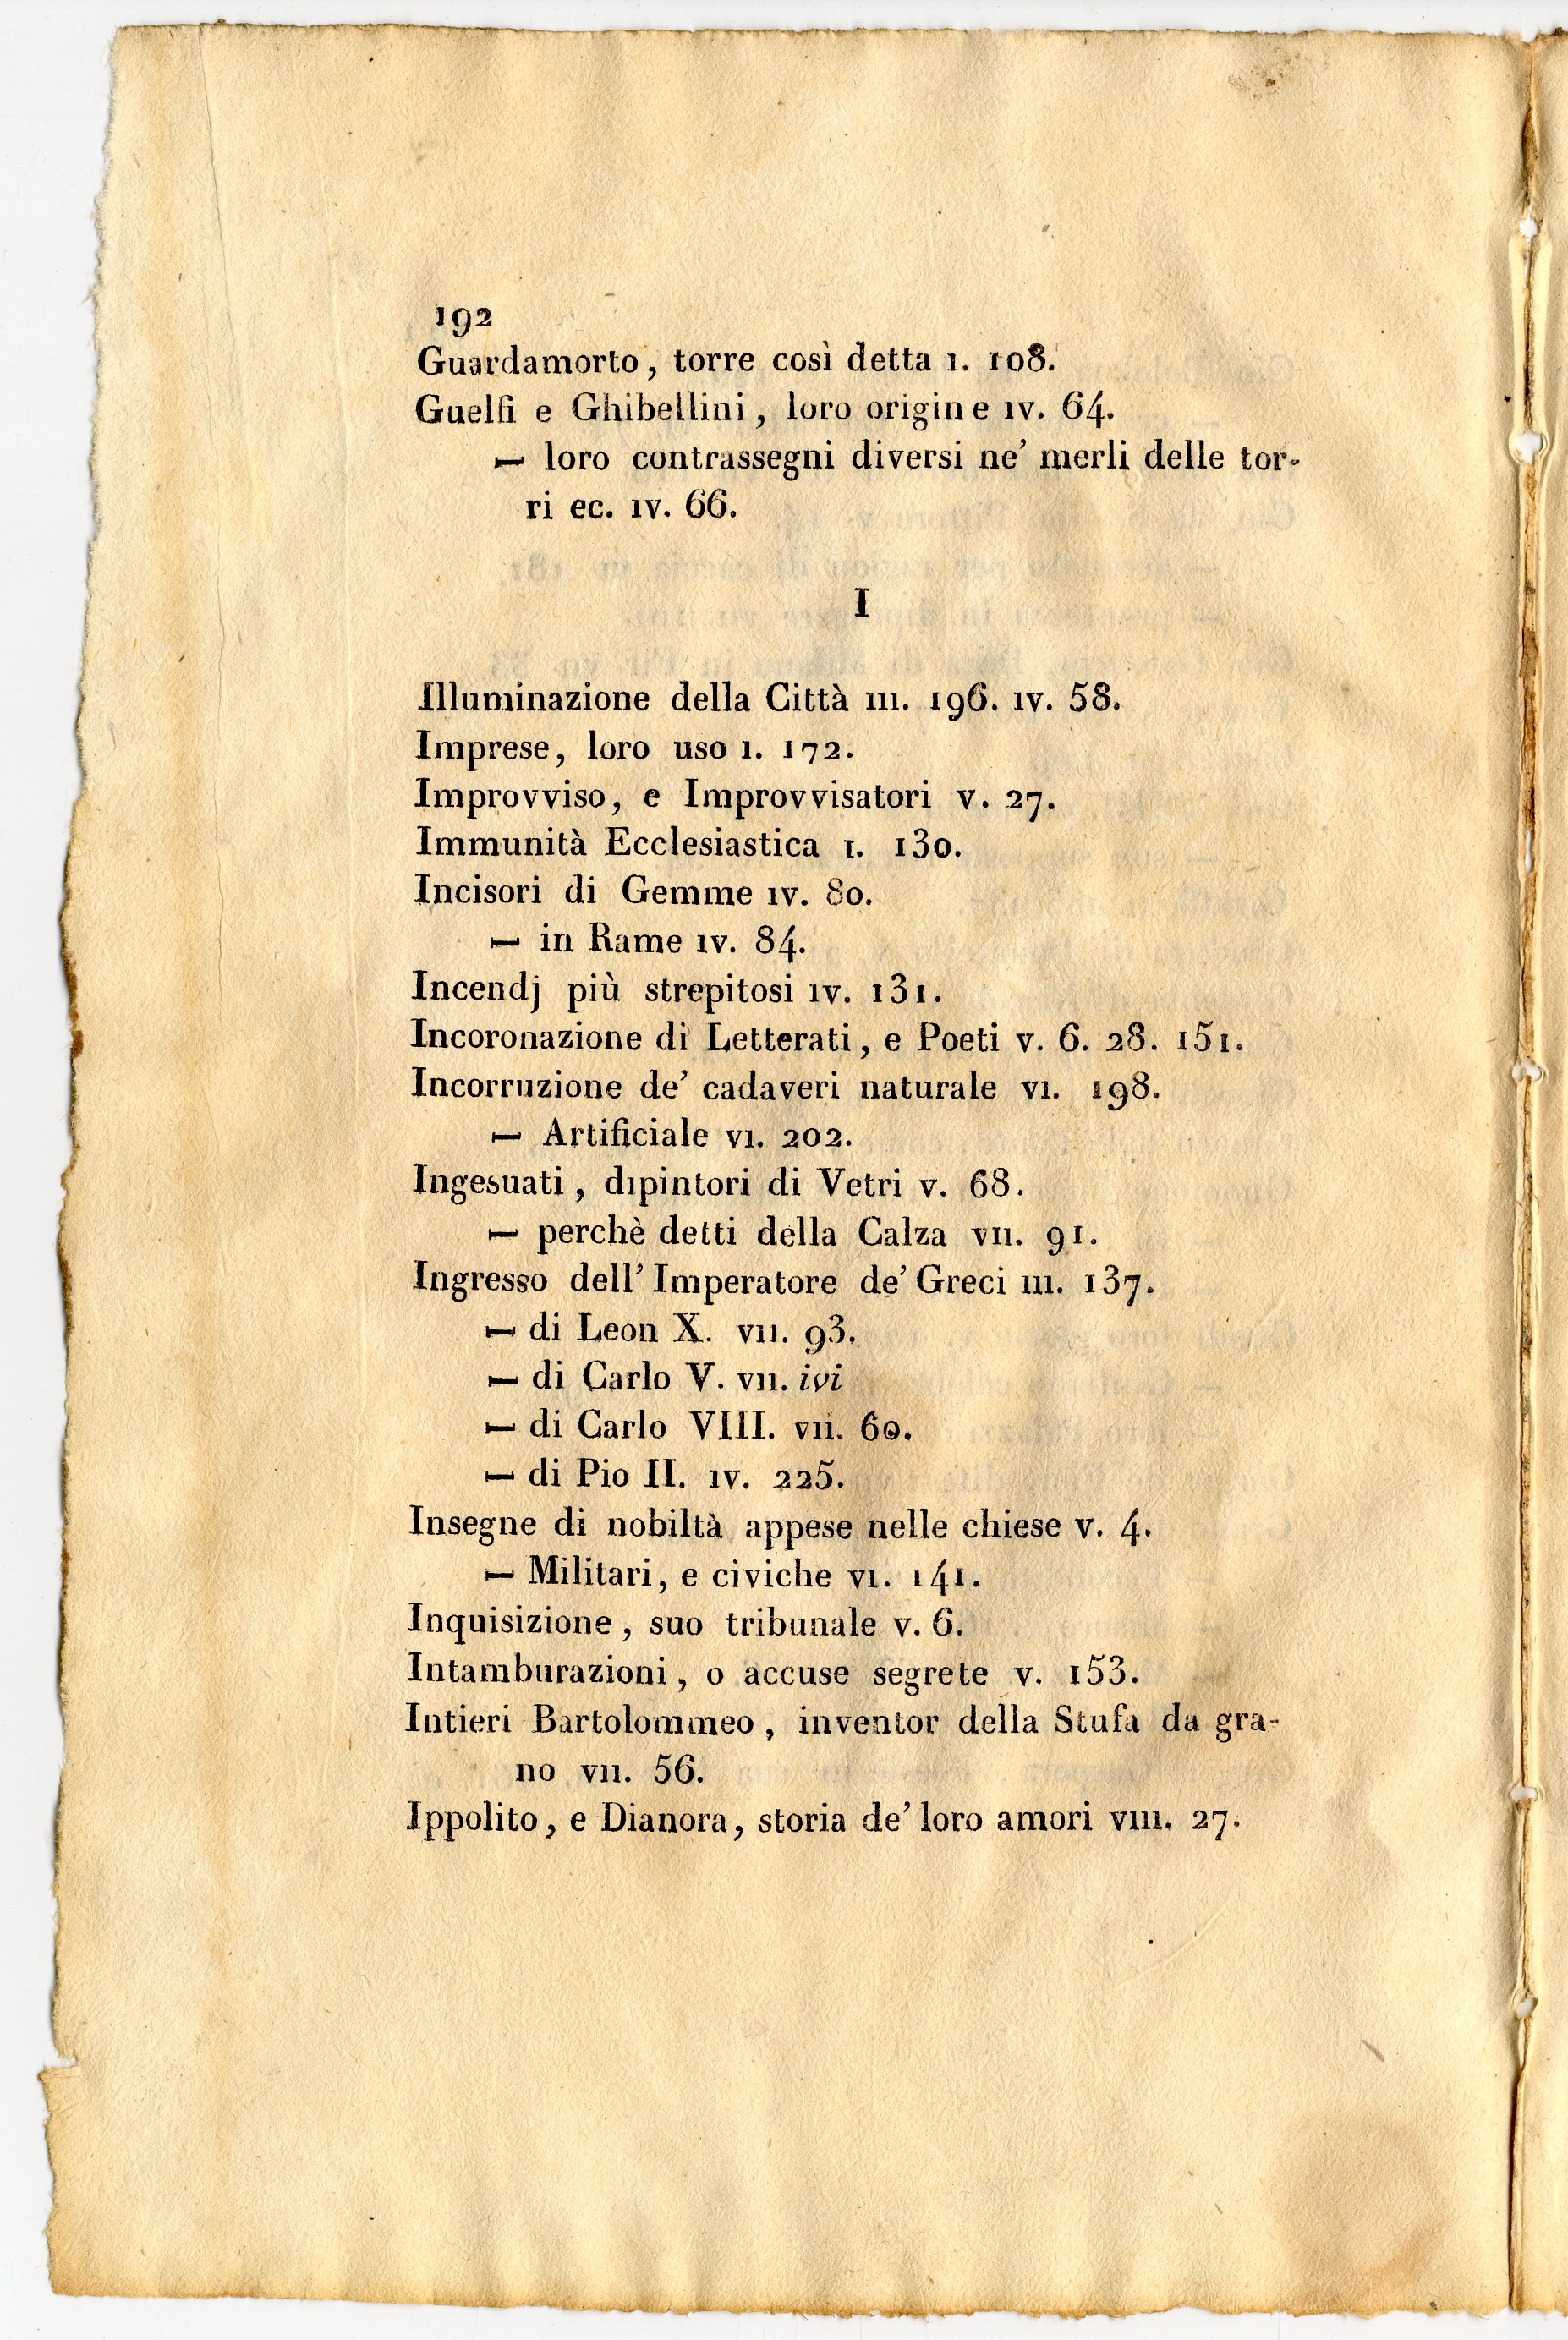 192
Guardamorto, torre così detta I. 108.
Guelfi e Ghibellini, loro origine IV. 64.
— loro contrassegni diversi ne' merli delle tor-
ri ec. IV. 66.
I
Illuminazione della Città III. 196. IV. 58.
Imprese, loro uso I. 172.
Improvviso, e Improvvisatori V. 27.
Immunità Ecclesiastica I. 130.
Incisori di Gemme IV. 80.
— in Rame IV. 84.
Incendj più strepitosi IV. 131.
Incoronazione di Letterati, e Poeti V. 6. 28. 151.
Incorruzione de' cadaveri naturale VI. 198.
— Artificiale VI. 202.
Ingesuati, dipintori di Vetri V. 68.
— perchè detti della Calza VII. 91.
Ingresso dell' Imperatore de' Greci III. 137.
— di Leon X. VII. 93.
— di Carlo V. VII. ivi
— di Carlo VIII. VII. 60.
— di Pio II. IV. 225.
Insegne di nobiltà appese nelle chiese V. 4.
— Militari, e civiche VI. 141.
Inquisizione, suo tribunale V. 6.
Intamburazioni, o accuse segrete V. 153.
Intieri Bartolommeo, inventor della Stufa da gra-
no VII. 56.
Ippolito, e Dianora, storia de' loro amori VIII. 27.